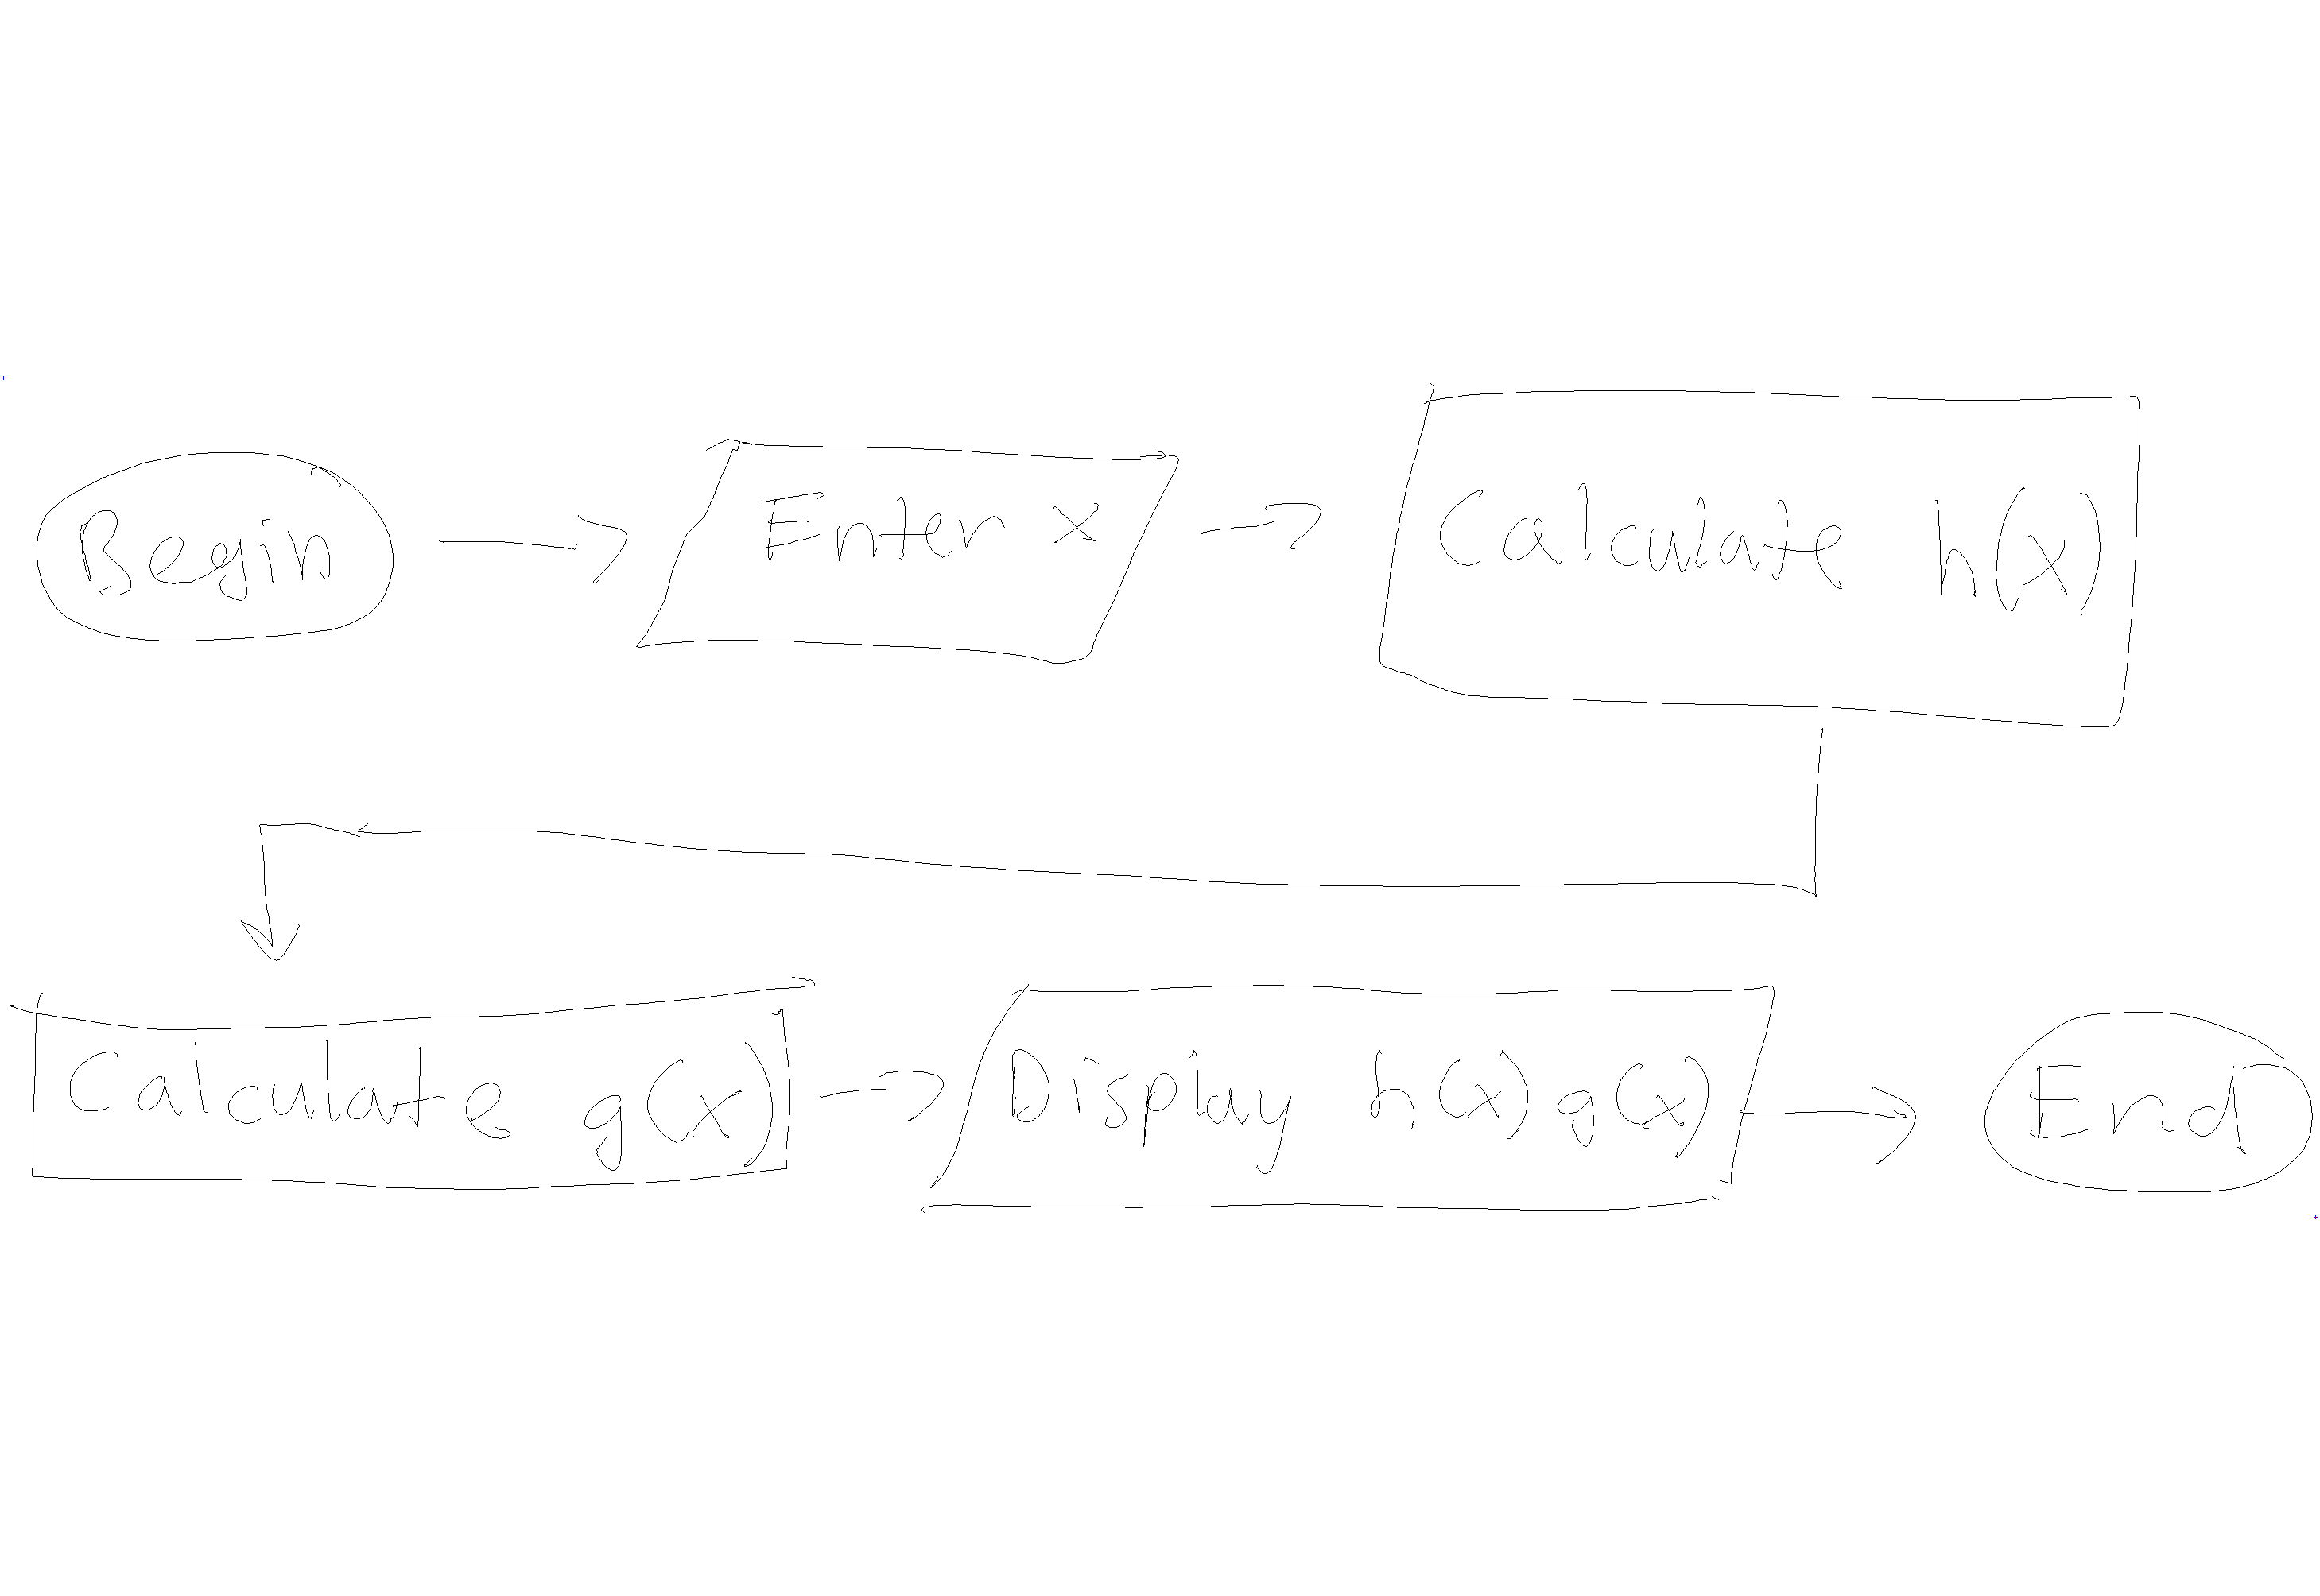 Begin
Enter x
Calculate h(x)
Calculate g(x)
Display h(x) g(x)
End